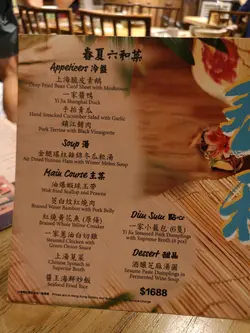 春夏六和菜
Appetizers 冷盤
上海脆皮素鵝
Deep-Fried Bean Curd Sheet with Mushroom
一家醬鴨
Yi Jia Shanghai Duck
手拍青瓜
Hand-Smacked Cucumber Salad with Garlic
鎮江餚肉
Pork Terrine with Black Vinaigrette
Soup 湯
金腿瑤柱雞燉冬瓜軟湯
with Winter Melon Soup
Main Course 主菜
油爆蝦球玉帶
Wok-Fried Scallop and Prawns
茭白紋紅燒肉
Braised Water Bamboo with Pork Belly
紅燒黃花魚(原條)
Braised Whole Yellow Croaker
一家蔥油白切雞
Steamed Chicken with
Green Onion Sauce
上湯莧菜
Chinese Spinach in
Superior Broth
醬王海鮮炒飯
Seafood Fried Rice
Dim Sum 點心
一家小籠包 (6隻)
Yi Jia Steamed Pork Dumplings
with Supreme Broth (6 pcs)
Dessert 甜品
酒釀芝麻湯圓
Sesame Paste Dumplings in
Fermented Wine Soup
$1688